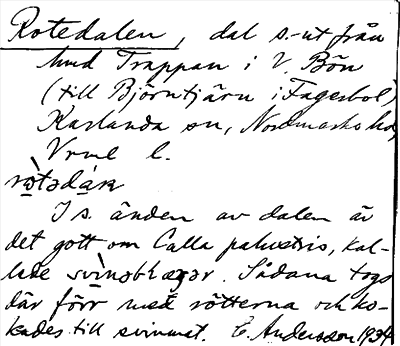 Rotedalen, dal s-ut från
hmd Trappan i V. Bön
(till Björntjärn i Fagerbol)
Karlanda sn, Nordmarks hd,
Vrml l.
I s. änden av dalen är
det gott om Calla palustris, kal-
lade Sådana togs
där förr med rötterna och ko-
kades till svinmat. E. Andersson 1934